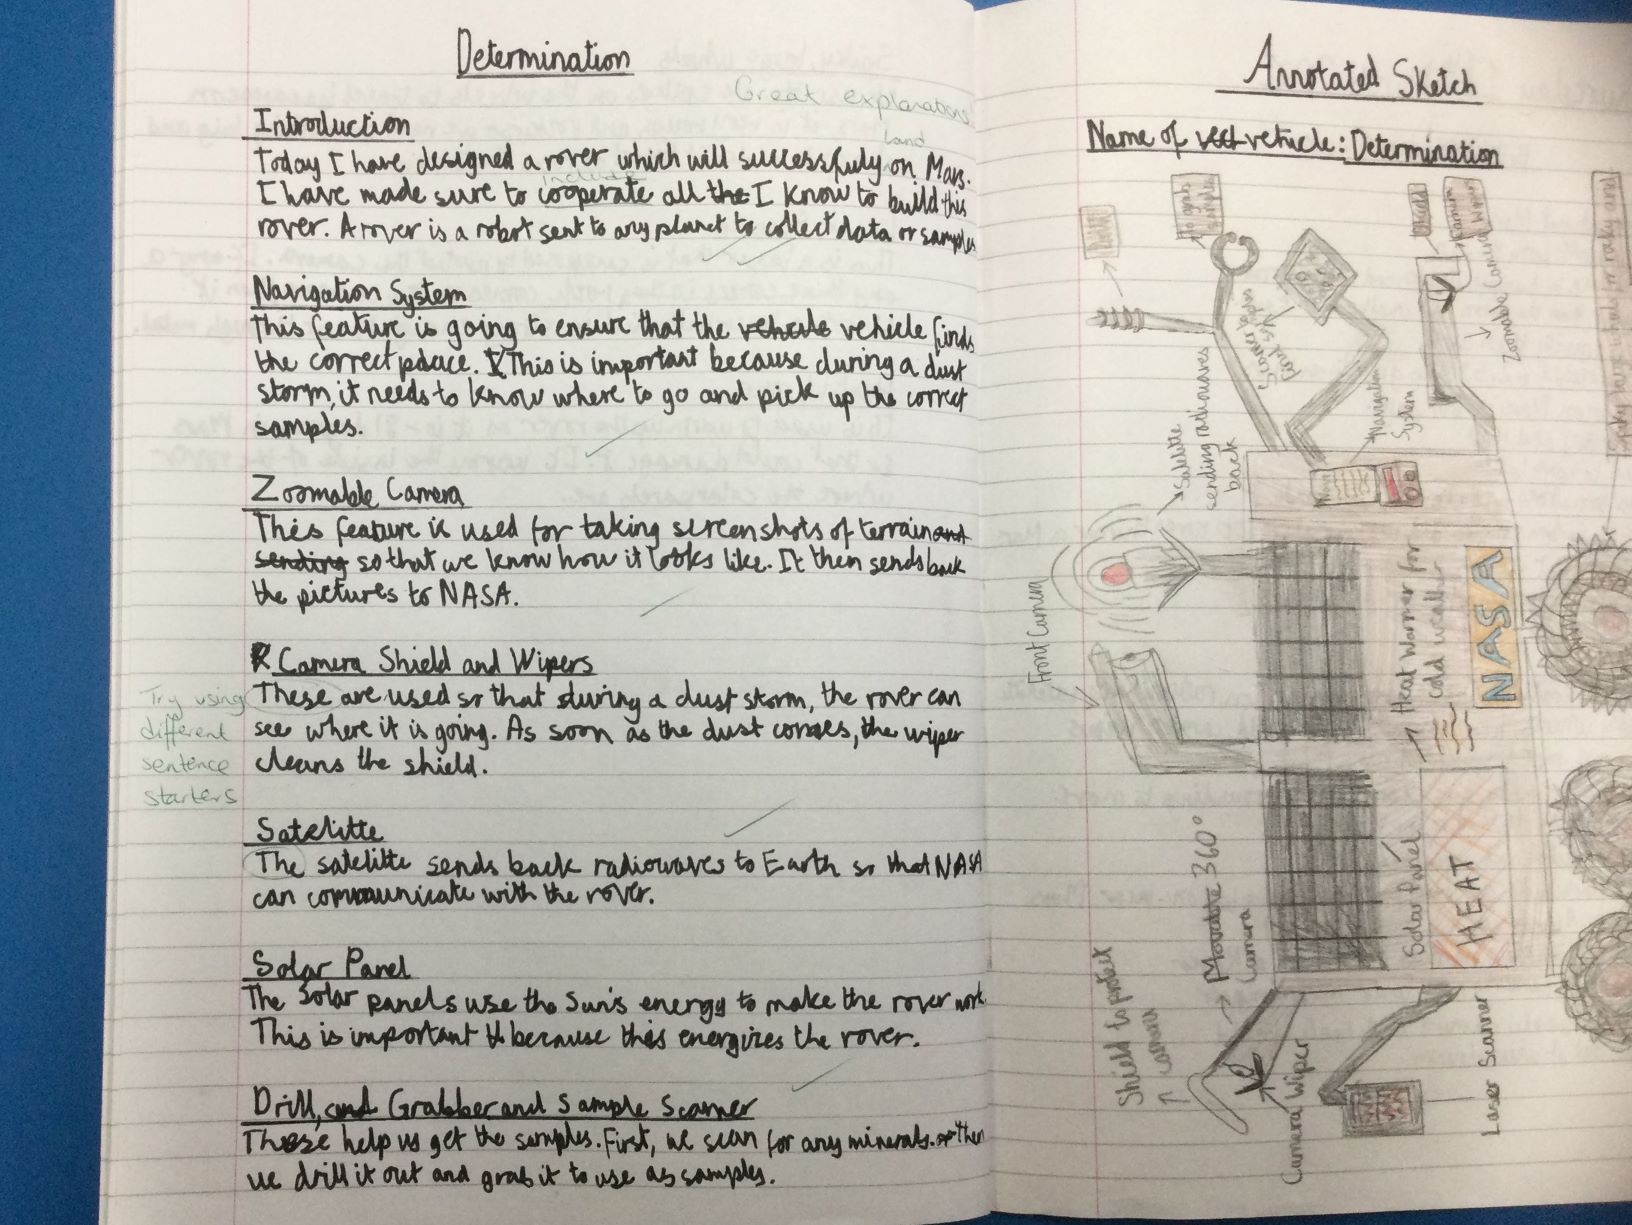 Determination
Great explanations!
Introduction
land
Today I have designed a rover which will successfuly on Mars.
include
I have made sure to cooperate all the I know to build this
rover. A rover is a robot sent to any planet to collect data or samples
Navigation System
This feature is going to ensure that the vehicle vehicle finds
the correct palace. This is important because during a dust
storm, it needs to know where to go and pick up the correct
samples.
Zoomable Camera
This feature is used for taking screenshots of terrain and
sending so that we know how it looks like. It then sends back
the pictures to NASA.
Camera Shield and Wipers
Try using
different
sentence
starters
These are used so that during a dust storm, the rover can
see where it is going. As soon as the dust comes, the wiper
cleans the shield.
Satelitte
The satelitte sends back radiowaves to Earth so that NASA
can communicate with the rover.
Solar Panel
The Solar panels use the Sun's energy to make the rover work.
This is important because this energizes the rover.
Drill, and Grabber and Sample Scanner
These help us get the samples. First, we scan for any minerals. then
we drill it out and grab it to use as samples.
Annotated Sketch
Name of vehicle: Determination
Drill
To grab
samples
Scanner to scan
Zoomable Camera
Navigation
System
Satelitte
sending radiowaves
back
Front Camera
Heat Warmer for
cold weather
NASA
Movable 360°
Camera
Solar Panel
HEAT
Shield to protect
camera
Camera Wiper
Laser Scanner